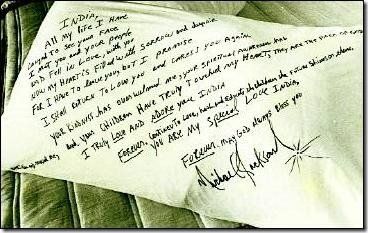 INDIA,
All my life I have
longed to see your FACE
I met you and your people
and fell in Love with you
Now my HEART is filled with SORROW and despair
For I have to leave, but I promise
I shall return to Love you and caress you Again.
your kindness has overwhelmed me, your spiritual awareness has
moved me, and your children have truly touched my HEART, they are the FACE of God
I truly Love AND Adore you INDIA
Forever, continue to love, heal and educate the children, the future shines on them.
you are my special Love INDIA,
Forever, may God Always bless you
Michael Jackson